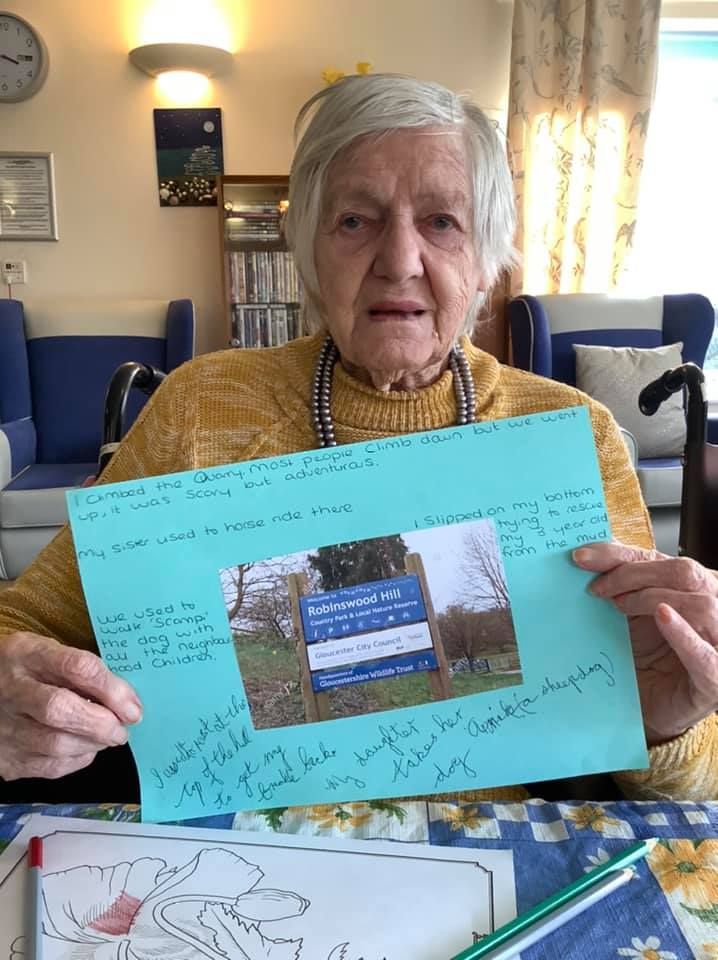 I Climbed the Quarry. Most people Climb down but we went
up, it was scary but adventurous.
My sister used to horse ride there
I Slipped on my bottom
trying to rescue
my 3 year old
from the mud
We used to
walk 'Scamp'
the dog with
all the neighbour
hood Children.
Welcome to
Robinswood Hill
Country Park & Local Nature Reserve
Gloucester City Council
Headquarters of
Gloucestershire Wildlife Trust
I would rest at the
top of the hill
to get my
breath back.
My daughter
takes her
dog
(a sheepdog)